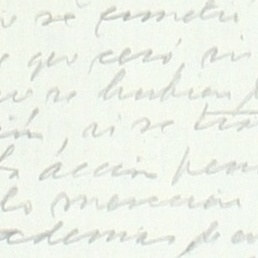 se cometi
que cesó, ni
se hubier
ión, si se tra
acción pen
lo mencion
ademas p